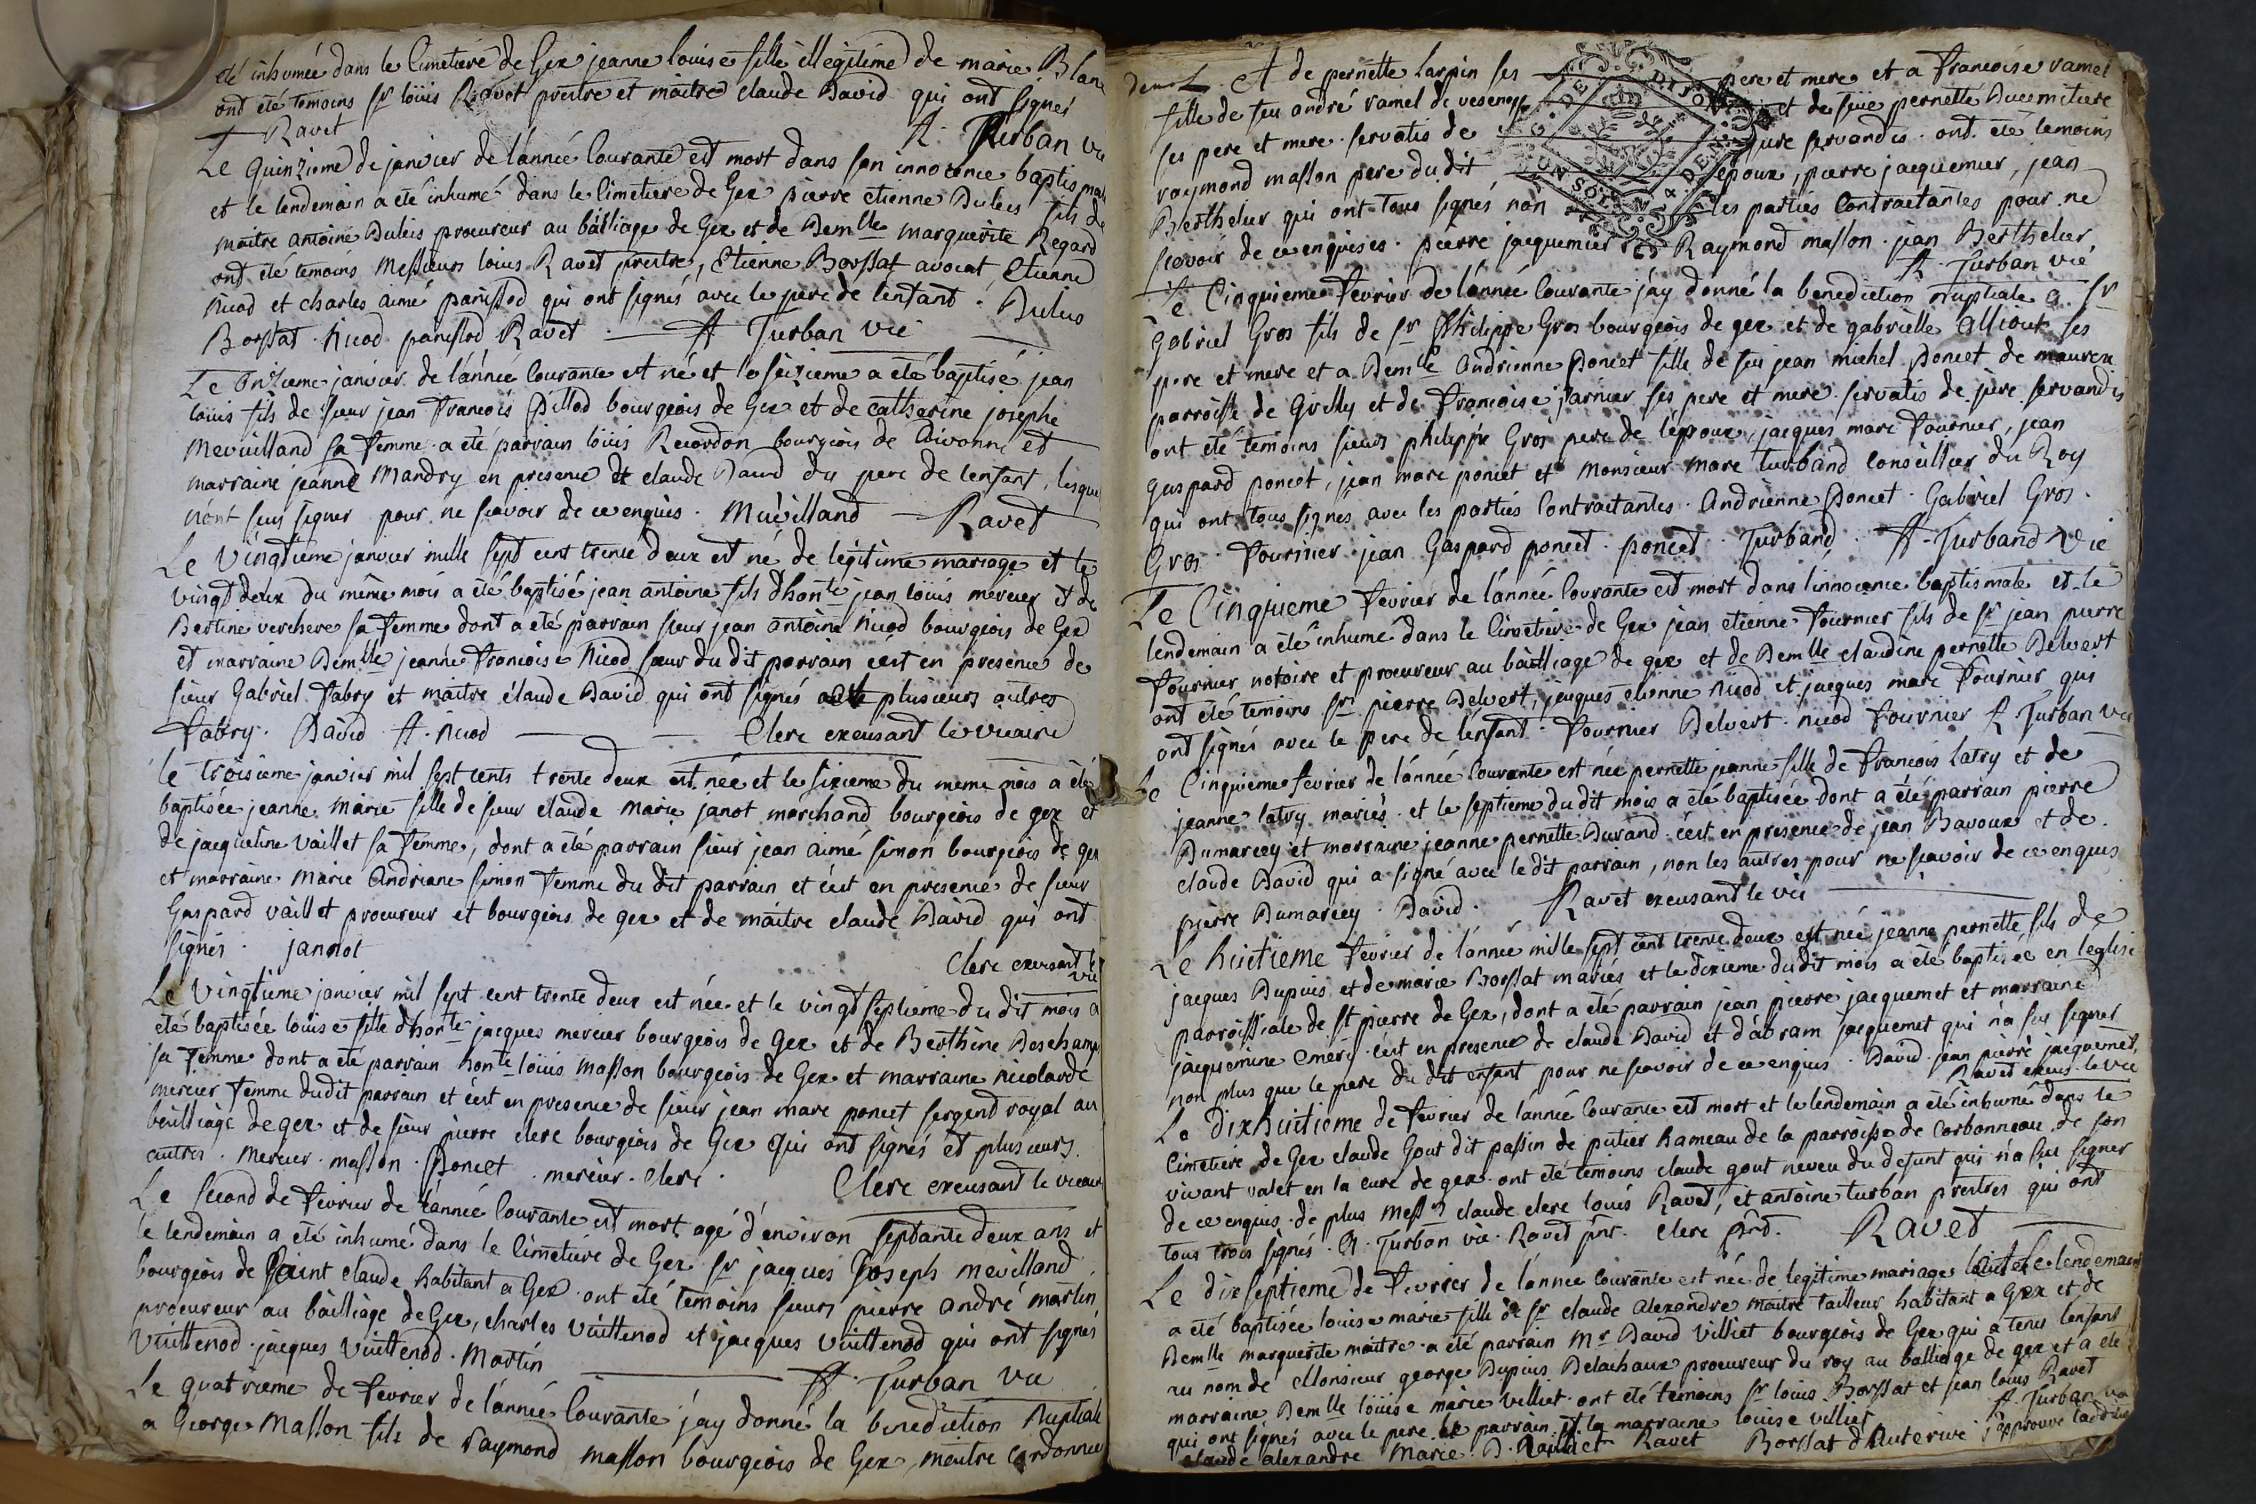 été inhumée dans le Cimetiere de Gex jeanne louise fille illegitime de marie Blanc
ont été temoins sr loüis Ravet prestre et maitre claude David qui ont signés
Ravet A. Turban vic
Le quinzieme de janvier de l'année Courante est mort dans son innocence baptismale
et le lendemain a été inhumé dans le Cimetiere de Gex pierre etienne Duleis fils de
maitre antoine Duleis procureur au bailliage de Gex et de Demlle marguerite Regard
ont été temoins Messieurs louis Ravet prestre, Etienne Borssat avocat Etienne
Nicod et charles aimé panissod qui ont signés avec le pere de l'enfant. Duleis
Borssat. Nicod panissod Ravet A Turban vic
Le Onzieme janvier de l'année Courante est né et le seizieme a été baptisé jean
louis fils de sieur jean francois Pillod bourgeois de Gex et de Catherine josephe
Mevuilland sa femme a été parrain loüis Recordon bourgeois de Divonne et
marraine jeanne Mandry en presence de claude David du pere de l'enfant, lesque
n'ont sçus signer pour ne scavoir de ce enquis. Mevilland Ravet
Le vingtieme janvier mille sept cent trente deux est né de legitime mariage et le
vingt deux du même mois a été baptisé jean antoine fils d'honte jean loüis mercier et de
Bertine verchere sa femme dont a été parrain sieur jean antoine Nicod bourgeois de Gex
et marraine Demlle jeanne francoise Nicod sœur du dit parrain c'est en presence de
sieur Gabriel fabry et maitre claude David qui ont signés avec plusieurs autres
Fabry. David A. Nicod Clerc excusant le vicaire
le troisieme janvier mil sept cents trente deux est née et le sixieme du meme mois a été
baptisée jeanne Marie fille de sieur claude Marie janot marchand bourgeois de gex et
de jacqueline vaillet sa femme, dont a été parrain sieur jean aimé simon bourgeois de gex
et marraine Marie Andriane simon femme du dit parrain et c'est en presence de sieur
Gaspard vaillet procureur et bourgeois de gex et de maitre claude David qui ont
signés. jannot Clerc excusant le vic
Le vingtieme janvier mil sept cent trente deux est née et le vingt septieme du dit mois a
été baptisée louise fille d'honte jacques mercier bourgeois de Gex et de Berthine Deschamp
sa femme dont a été parrain honte loüis Masson bourgeois de Gex et marraine nicolarde
mercier femme dudit parrain et c'est en presence de sieur jean marc poncet sergend royal au
bailliage de gex et de sieur pierre clerc bourgeois de Gex qui ont signés et plusieurs
autres. Mercier. masson. Poncet. mercier. clerc. Clerc excusant le vicaire
Le second de fevrier de l'année Courante est mort agé d'environ septante deux ans et
le lendemain a été inhumé dans le Cimetiere de Gex sr jacques Joseph mevilland
bourgeois de Saint claude habitant a Gex. ont été temoins sieurs pierre andré martin
procureur au bailliage de Gex, charles vuittenod et jacques vuittenod qui ont signés
vuittenod. jacques vuittenod. Martin A. Turban vic
Le quatrieme de fevrier de l'année Courante j'ay donné la benediction Nuptiale
a George Masson fils de raymond masson bourgeois de Gex, meutre Cordonnier
A de pernette Larpin ses pere et mere et a francoise ramel
fille de feu andré ramel de vesenex et de feüe pernette Duemetiere
ses pere et mere. servatis de jure servandis. ont été temoins
raymond masson pere du dit epoux, pierre jacquemier, jean
Berthelier qui ont tous signés non les parties Contractantes pour ne
scavoir de ce enquises. pierre jacquemier Raymond masson. jean Berthelier,
A. Turban vic
Le Cinquieme fevrier de l'année Courante j'ay donné la benediction nuptiale a sr
Gabriel Gros fils de sr Philippe Gros bourgeois de gex et de gabrielle Alliout ses
pere et mere et a Demlle Andrienne Poncet fille de feu jean michel Poncet de maurex
parroisse de Grilly et de francoise jarnier ses pere et mere. servatis de jure servandis
ont été temoins sieurs philippe Gros pere de l'epoux, jacques marc fournier, jean
Gaspard poncet, jean marc poncet et Monsieur marc turband conseillier du Roy
qui ont tous signés avec les parties Contractantes. Andrienne Poncet. Gabriel Gros.
Gros. Fournier jean Gaspard poncet. poncet Turband. A. Turband Vic
Le Cinquieme fevrier de l'année Courante est mort dans l'innocence baptismale et le
lendemain a été inhumé dans le Cimetiere de Gex jean etienne Fournier fils de sr jean pierre
fournier notaire et procureur au bailliage de gex et de Demlle claudine pernette Delvert
ont été temoins srs pierre Delvert, jacques etienne Nicod et jacques marc Fournier qui
ont signés avec le pere de l'enfant. Fournier Delvert. Nicod fournier A Turban vic
Le Cinquieme fevrier de l'année Courante est née pernette jeanne fille de francois Latry et de
jeanne latry mariés. et le septieme du dit mois a été baptisée dont a été parrain pierre
Dumarcey et marraine jeanne pernette Durand. c'est en presence de jean Bavoux et de
claude David qui a signé avec le dit parrain, non les autres pour ne scavoir de ce enquis
pierre Dumarcey. David. Ravet excusant le vic
Le huitieme fevrier de l'année mille sept cent trente deux est née jeanne pernette fils de
jacques Dupuis et de marie Borssat mariés et le dixieme du dit mois a été baptisée en l'eglise
parroissiale de st pierre de Gex, dont a été parrain jean pierre jacquemet et marraine
jacquemine emery. c'est en presence de claude David et d'abram jacquemet qui n'a sçu signer
non plus que le pere du dit enfant pour ne scavoir de ce enquis. David. jean pierre jacquemet.
Ravet excus. le vic
Le dixhuitieme de fevrier de l'année Courante est mort et le lendemain a été inhumé dans le
Cimetiere de Gex claude Gout dit passin de putier hameau de la parroisse de Corbonneau de son
vivant valet en la cure de gex. ont été temoins claude gout neveu du defunt qui n'a sçu signer
de ce enquis. de plus Messrs claude clerc louis Ravet, et antoine turban prestres qui ont
tous trois signés. A. Turban vic. Ravet ptre. clerc Ptre. Ravet
Le dixseptieme de fevrier de l'annee courante est née de legitime mariage et le lendemain
a été baptisée louise marie fille de sr claude alexandre maitre tailleur habitant a Gex et de
Demlle marguerite maitre. a été parrain Mr David villiet bourgeois de Gex qui a tenu l'enfant
au nom de Monsieur george Dupuis Delachaux procureur du roy au balliage de gex et a été
marraine Demlle loüise marie villiet. ont été temoins sr louis Borssat et jean louis Ravet
qui ont signés avec le pere le parrain et la marraine louise villiet A Turban vic
claude alexandre Marie. D. Ravet Borssat d'Auterive j'approuve